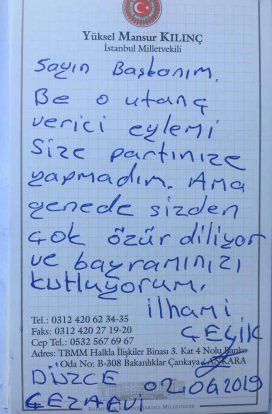 Yüksel Mansur KILINÇ
İstanbul Milletvekili
Sayın Başkanım.
Be o utanç
verici eylemi
Size partinize
yapmadım. Ama
genede sizden
çok özür diliyor
ve bayramınızı
kutluyorum.
ilhami
ÇELİK
Tel.: 0312 420 62 34-35
Faks: 0312 420 27 19-20
Cep Tel.: 0532 567 69 67
Adres: TBMM Halkla İlişkiler Binası 3. Kat 4 Nolu Banko
Oda No: B-308 Bakanlıklar Çankaya/ANKARA
DÜZCE 02 06 2019
CEZAEVİ